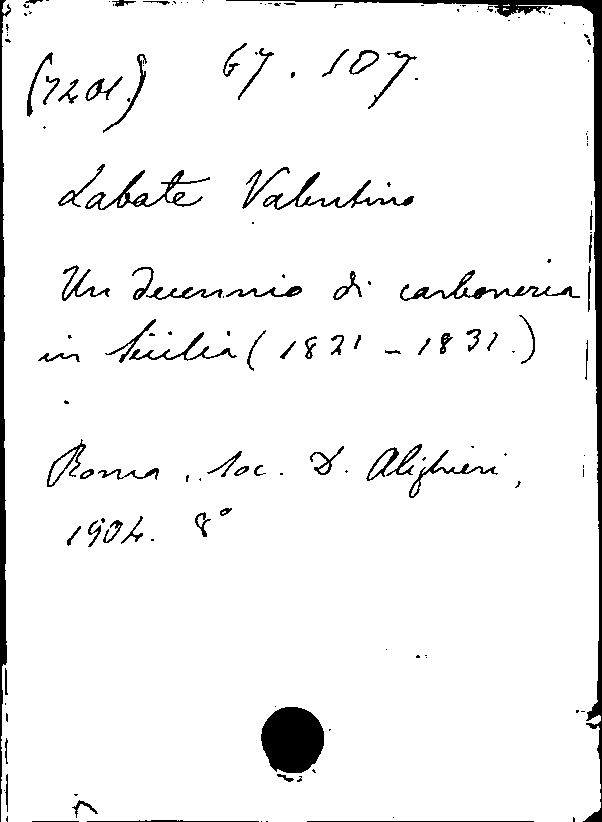 (7201) 67.107.
Labate Valentino
Un decennio di carboneria
in Sicilia (1821-1831.)
Roma, Soc. D. Alighieri,
1904. 8°